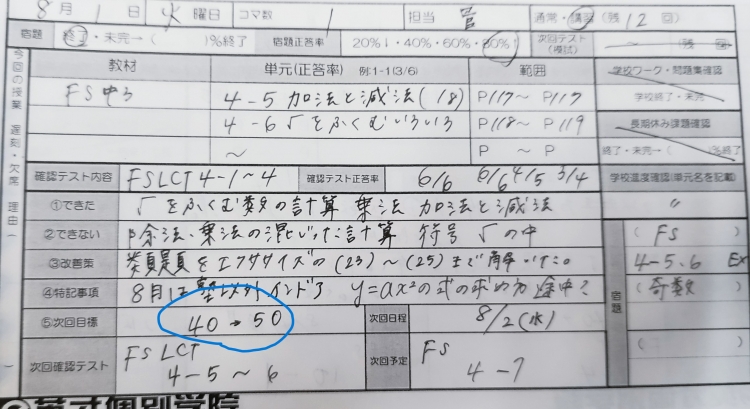 8月1日 火曜日 コマ数 1 担当 菅 通常・講習(残12回)
宿題 終了・未完→( )%終了 宿題正答率 20%↓・40%・60%・80%↑ 次回テスト(模試) ~ (残 回)
教材 単元(正答率) 例:1-1(3/6) 範囲 学校ワーク・問題集確認
FS中3 4-5 加法と減法(18) P117~P117 学校終了・未完
4-6 √をふくむいろいろ P118~P119 長期休み課題確認
~ P ~ P 終了・未完→( )%終了
確認テスト内容 FSLCT 4-1~4 確認テスト正答率 6/6 6/6 4/5 3/4 学校進度確認(単元名を記載)
①できた √をふくむ数の計算 乗法 加法と減法 〃
②できない 除法・乗法の混じった計算 符号 √の中 (FS)
③改善策 類題をエクササイズの(23)~(25)まで解いた。 4-5.6 Ex
④特記事項 8月は塾以外 y=ax²の式の求め方 途中? (奇数)
⑤次回目標 40→50 次回日程 8/2(水) 宿題
次回確認テスト FSLCT 次回予定 FS ( )
4-5~6 4-7
今回の授業 遅刻・欠席 理由( )
英才個別学院